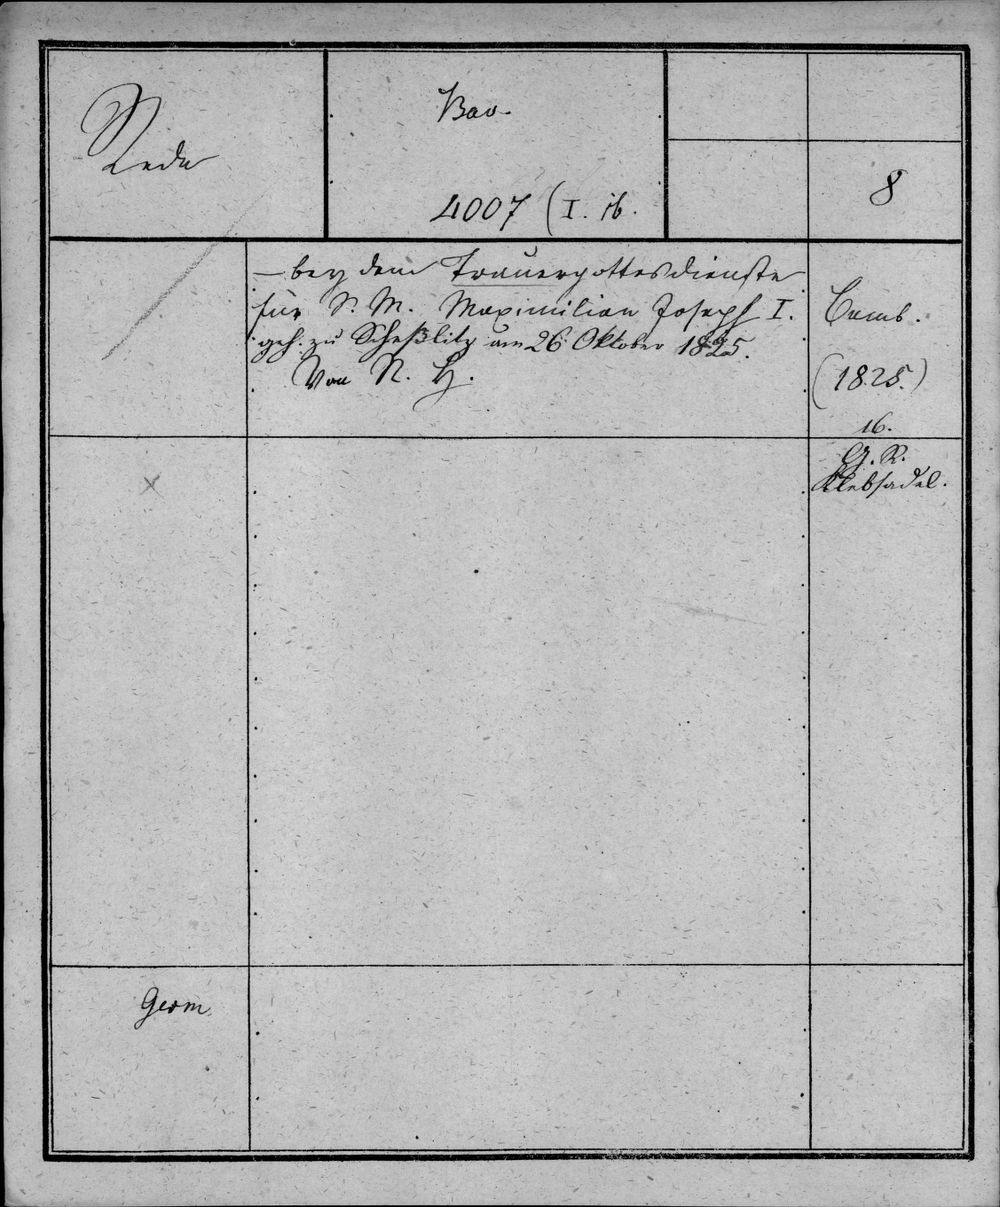 Rede
Bav.
4007 (I. ib.
8
— bey dem Trauergottesdienste
für S. M. Maximilian Joseph I.
geh. zu Scheßlitz am 26 Oktober 1825.
Von N. H.
Bamb.
(1825.)
16.
G. R.
Klebsadel.
Germ